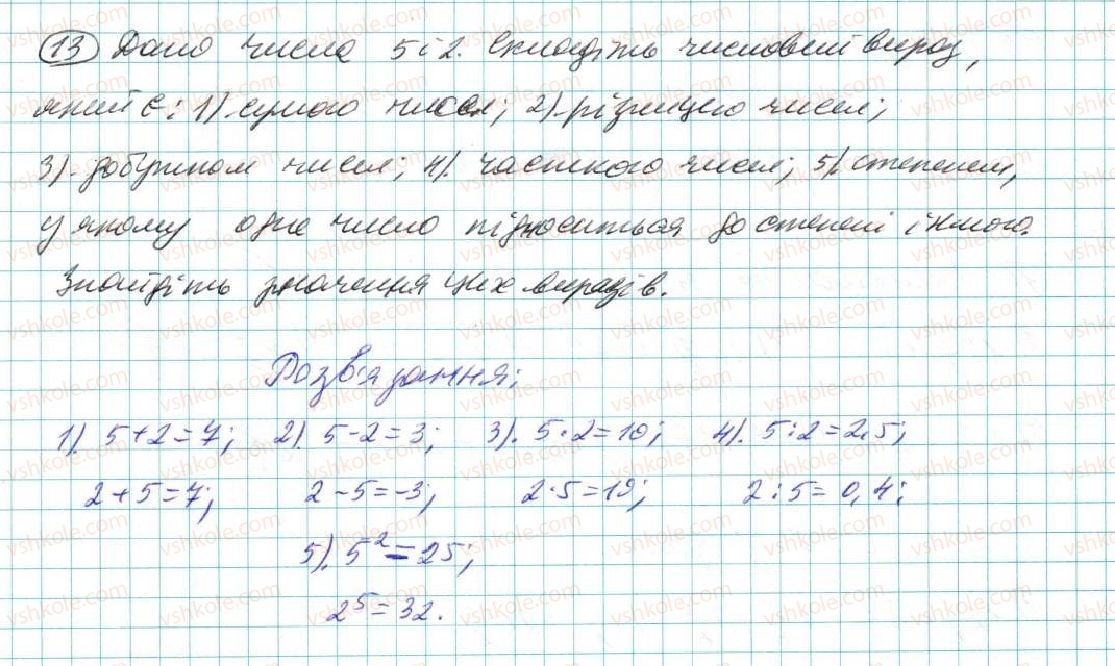 13 Дано числа 5 і 2. Складіть числовий вираз,
який є: 1). сумою чисел; 2). різницею чисел;
3). добутком чисел; 4). часткою чисел; 5). степенем,
у якому одне число підноситься до степені іншого.
Знайдіть значення цих виразів.
Розв'язання:
1). 5+2=7; 2). 5-2=3; 3). 5·2=10; 4). 5:2=2,5;
2+5=7; 2-5=-3; 2·5=10; 2:5=0,4;
5). 5²=25;
2⁵=32.